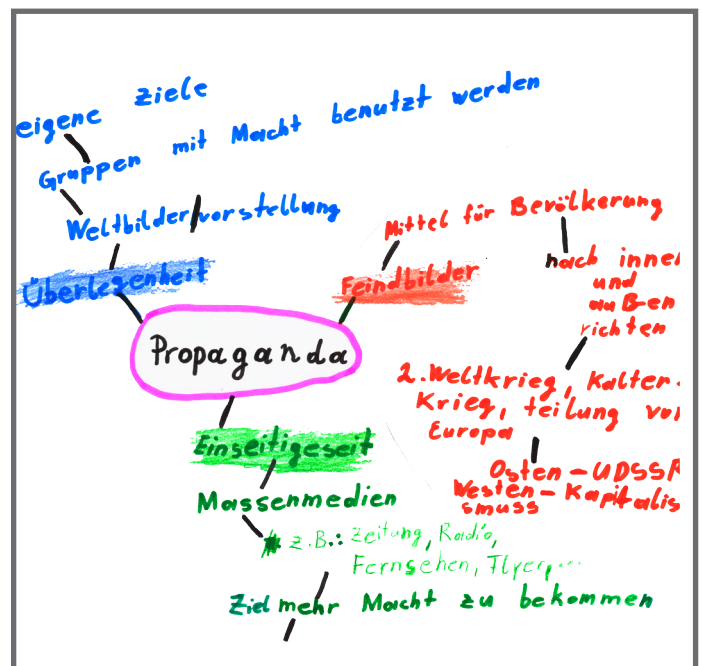 eigene Ziele
Gruppen mit Macht benutzt werden
Weltbilder/vorstellung
Überlegenheit
Propaganda
Feindbilder
Mittel für Bevölkerung
nach innen
und
außen
richten
2. Weltkrieg, Kalter
Krieg, teilung von
Europa
Osten - UDSSR
Westen - Kapitalis
smuss
Einseitigeseit
Massenmedien
z.B.: Zeitung, Radio,
Fernsehen, Flyer, ...
Ziel mehr Macht zu bekommen